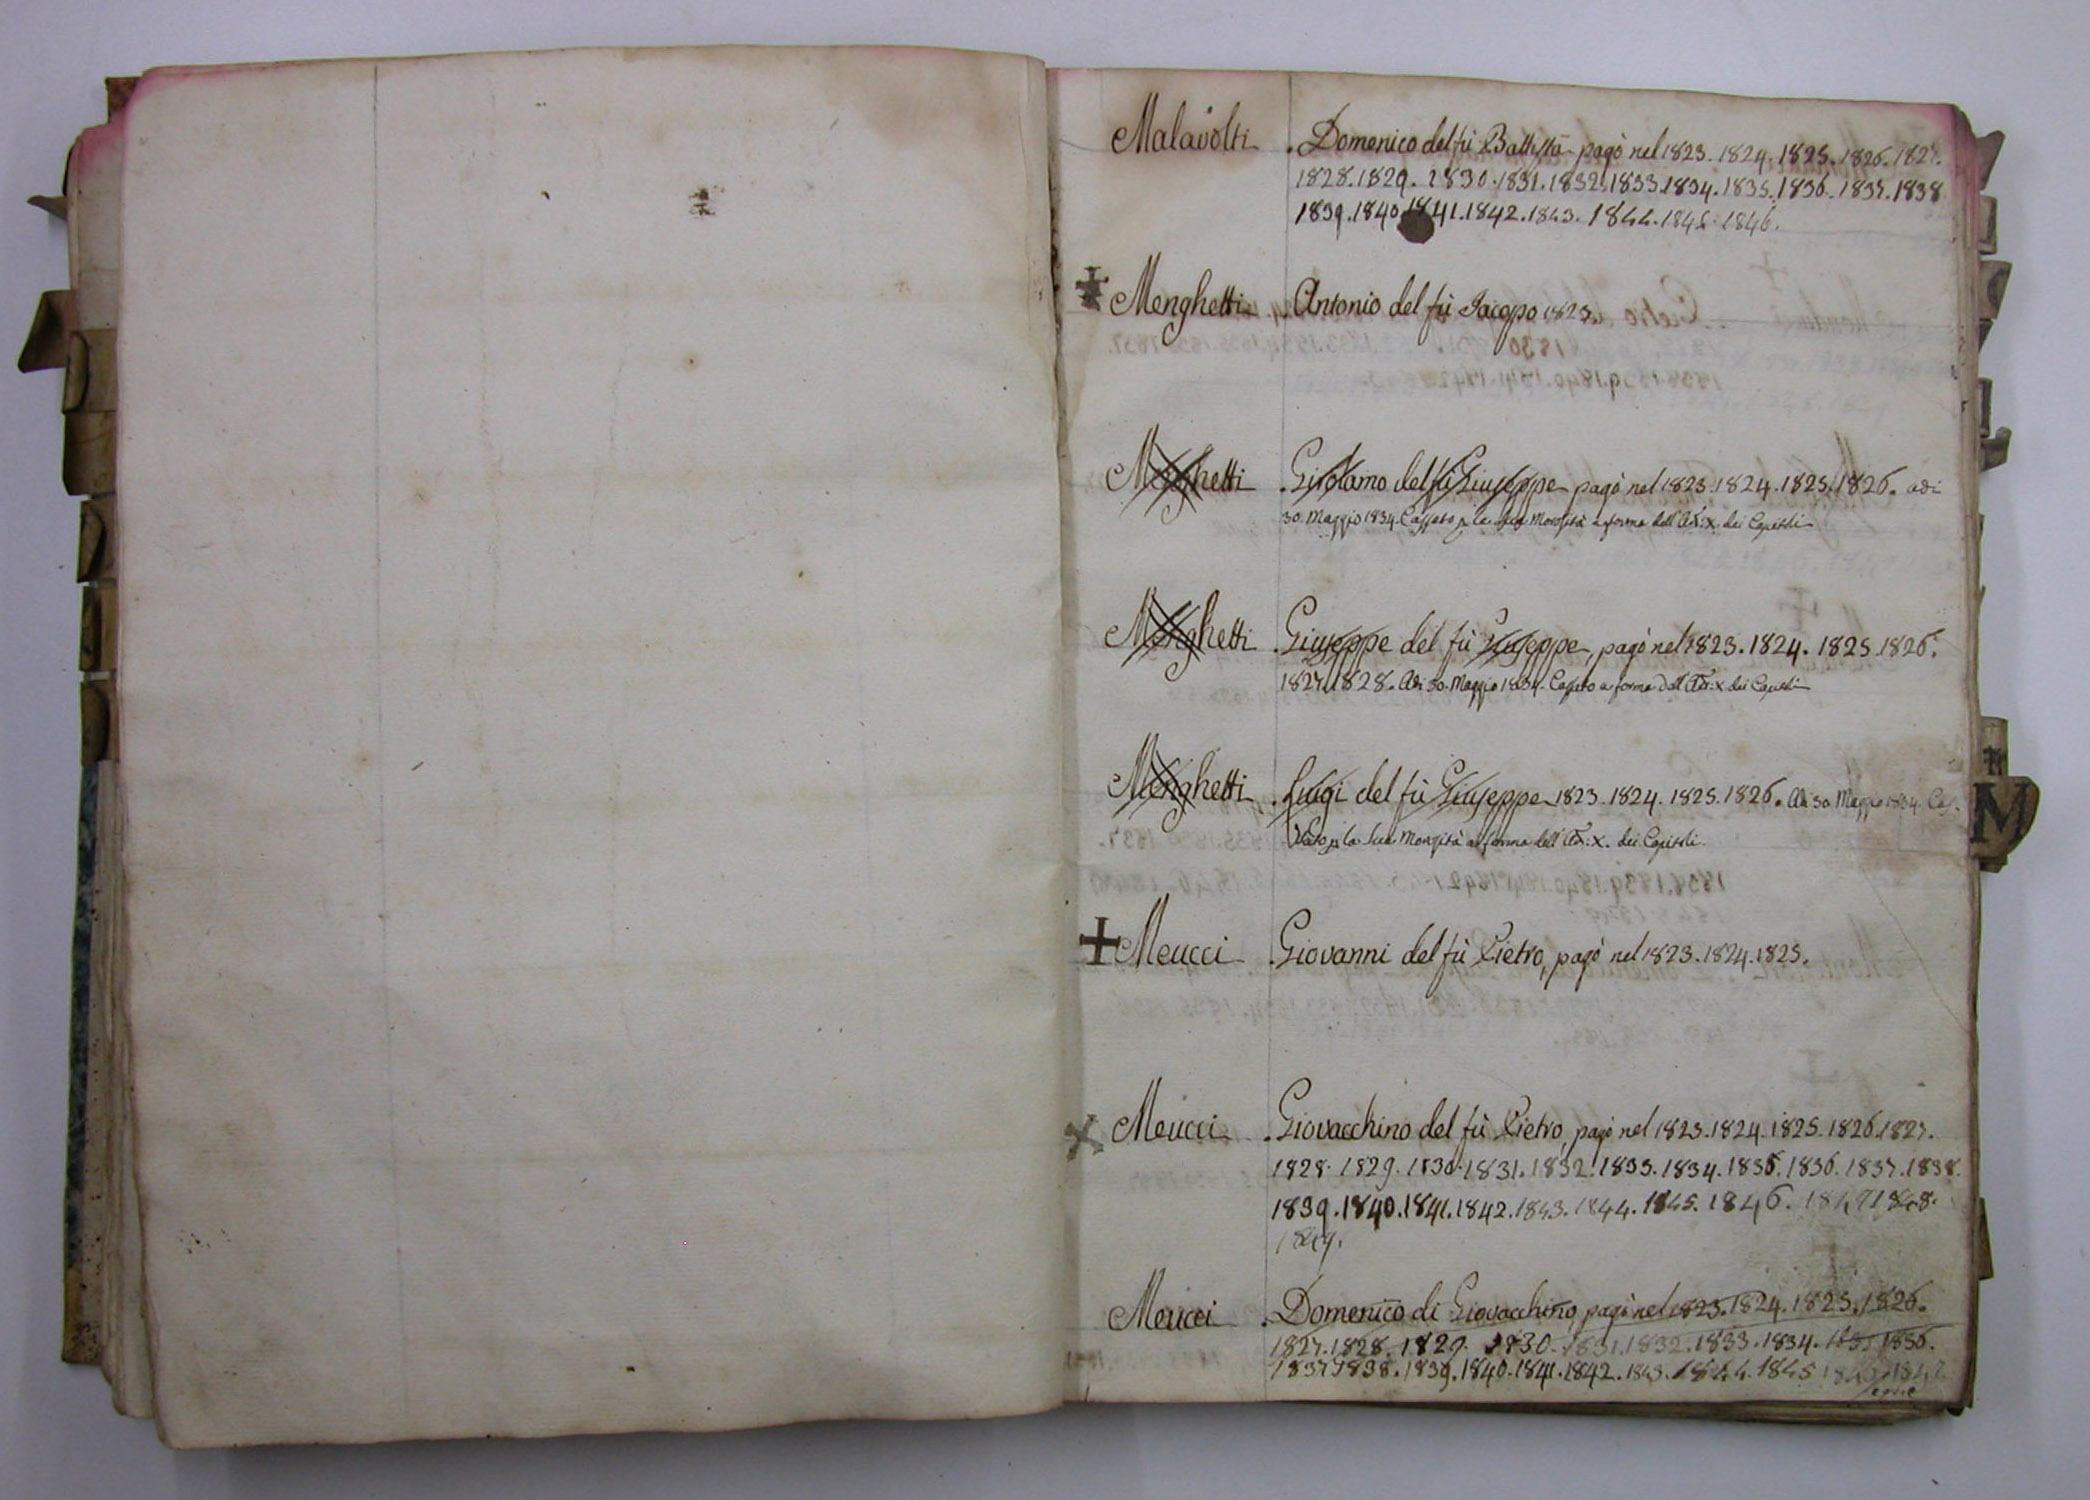 Malavolti . Domenico del fù Battista pagò nel 1823. 1824. 1825. 1826. 1827.
1828. 1829. 1830. 1831. 1832. 1833. 1834. 1835. 1836. 1837. 1838
1839. 1840. 1841. 1842. 1843. 1844. 1845. 1846.
Menghetti . Antonio del fù Jacopo 1823.
Menghetti . Girolamo del fù Giuseppe pagò nel 1823. 1824. 1825. 1826. adi
30. Maggio 1834. Cassato p. la sua Morosità a forma dell'Art: X. dei Capitoli
Menghetti . Giuseppe del fù Giuseppe, pagò nel 1823. 1824. 1825. 1826.
1827. 1828. Adi 30. Maggio 1834. Cassato a forma dell'Art: X dei Capitoli
Menghetti . Luigi del fù Giuseppe 1823. 1824. 1825. 1826. Adi 30. Maggio 1834. Cas-
sato p. la sua Morosità a forma dell'Art: X. dei Capitoli.
M
Meucci . Giovanni del fù Pietro, pagò nel 1823. 1824. 1825.
Meucci . Giovacchino del fù Pietro, pagò nel 1823. 1824. 1825. 1826. 1827.
1828. 1829. 1830. 1831. 1832. 1833. 1834. 1835. 1836. 1837. 1838.
1839. 1840. 1841. 1842. 1843. 1844. 1845. 1846. 1847. 1848.
1849.
Meucci . Domenico di Giovacchino, pagò nel 1823. 1824. 1825. 1826.
1827. 1828. 1829. 1830. 1831. 1832. 1833. 1834. 1835. 1836.
1837. 1838. 1839. 1840. 1841. 1842. 1843. 1844. 1845 1846. 1847.